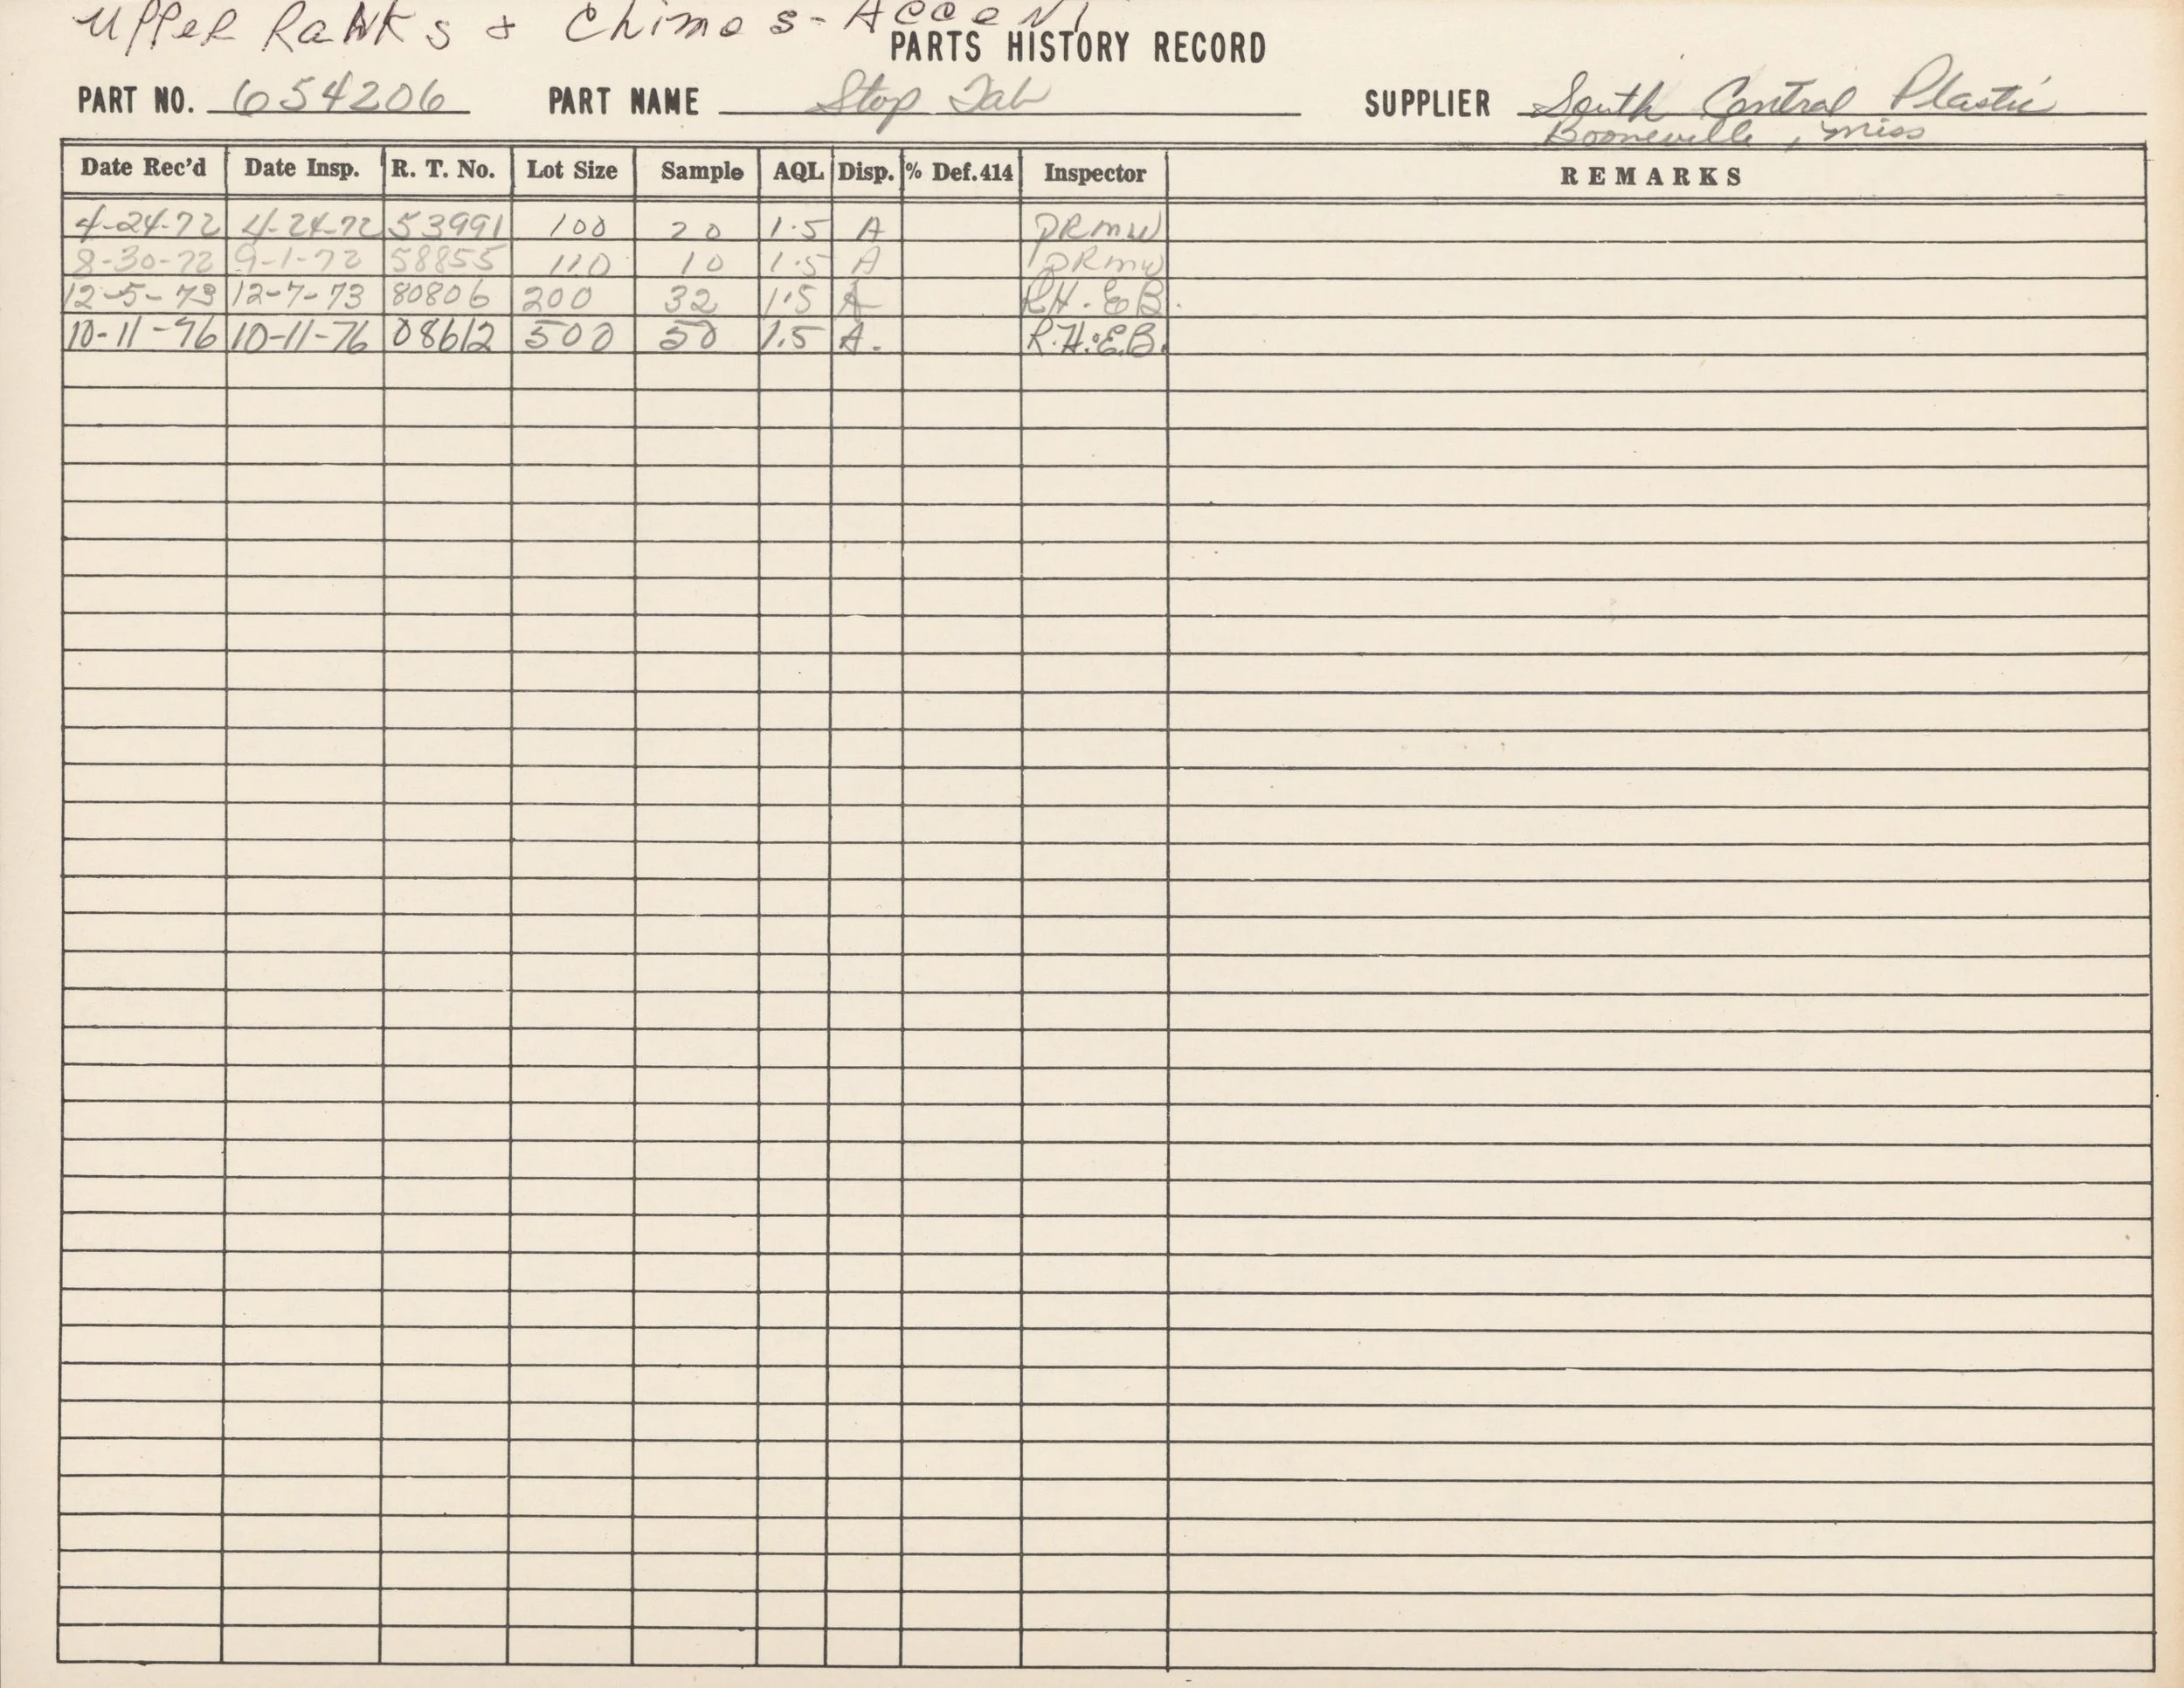 Upper Ranks & Chimes - Accent
PARTS HISTORY RECORD
PART NO. 654206 PART NAME Stop Tab SUPPLIER South Central Plastic
Booneville, Miss
Date Rec'd Date Insp. R. T. No. Lot Size Sample AQL Disp. % Def.414 Inspector REMARKS
4-24-72 4-24-72 53991 100 20 1.5 A DRMW
8-30-72 9-1-72 58855 110 10 1.5 A DRMW
12-5-73 12-7-73 80806 200 32 1.5 A R.H. E.B.
10-11-76 10-11-76 08612 500 50 1.5 A. R.H. E.B.